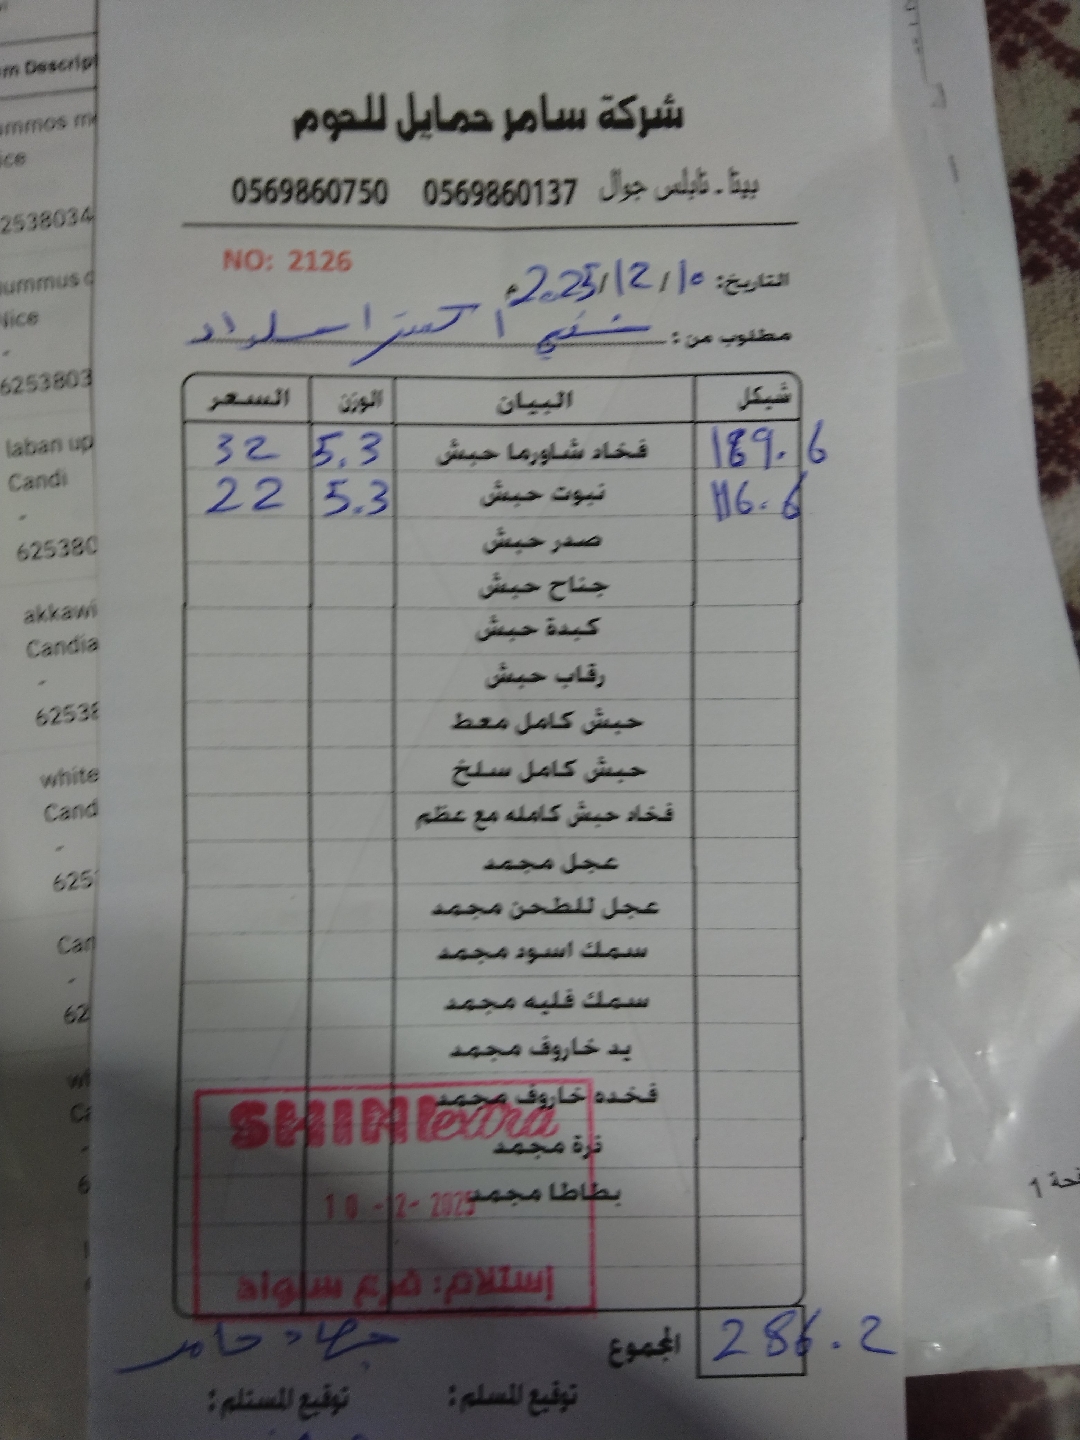 شركة سامر حمايل للحوم
بيتا - نابلس جوال 0569860137 0569860750
NO: 2126
التاريخ: 10/12/2025م
مطلوب من: شني اكسترا سلواد
شيكل البيان الوزن السعر
189.6 فخاد شاورما حبش 5.3 32
116.6 نيوت حبش 5.3 22
صدر حبش
جناح حبش
كبدة حبش
رقاب حبش
حبش كامل معط
حبش كامل سلخ
فخاد حبش كامله مع عظم
عجل مجمد
عجل للطحن مجمد
سمك اسود مجمد
سمك فليه مجمد
يد خاروف مجمد
فخده خاروف مجمد
SHINI extra
ذرة مجمد
بطاطا مجمد
10 -12- 2025
إستلام: فرع سلواد
المجموع 286.2
جهاد حامد
توقيع المسلم: توقيع المستلم:
em Descript
ummos me
ice
2538034
ummus
Nice
-
6253803
laban up
Candi
-
625380
akkawi
Candia
-
62538
white
Cand
-
625
Can
-
62
1